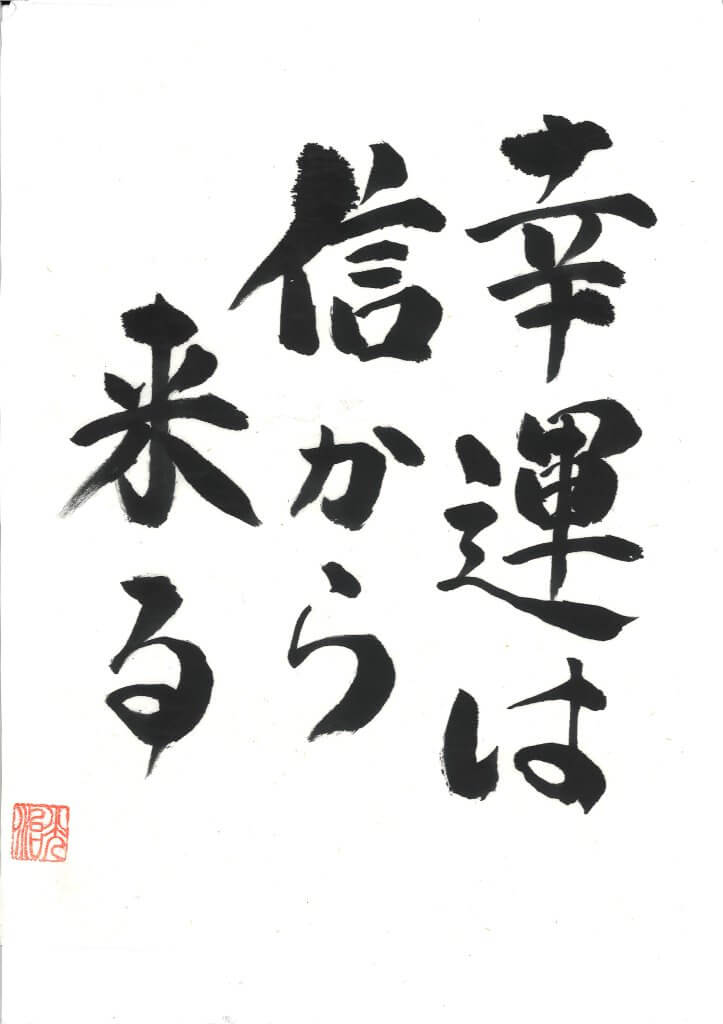 幸運は
信から
来る